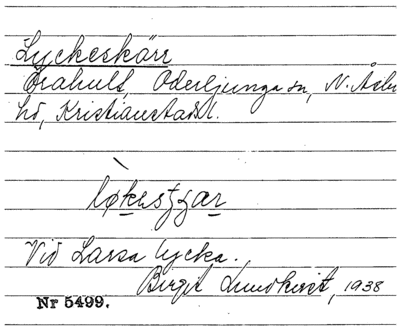 Lyckeskärr
Erahult, Oderljunga sn, N. Åsbo
hd, Kristianstads l.
Vid Larsa lycka.
Birgit Lundkvist, 1938
Nr 5499.